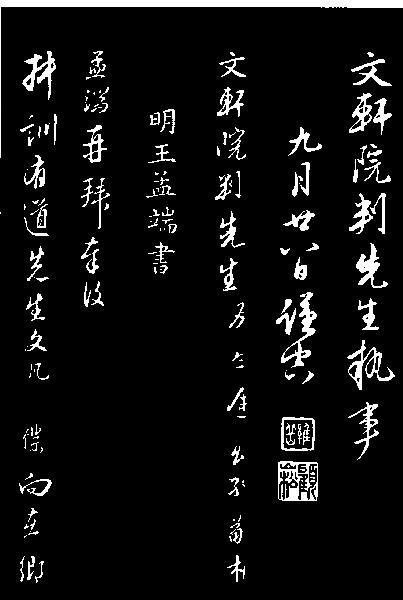 文軒院判先生執事
九月廿八日謹空
文軒院判先生
明王孟端書
孟端再拜奉復
訓有道先生文几 傑向在鄉